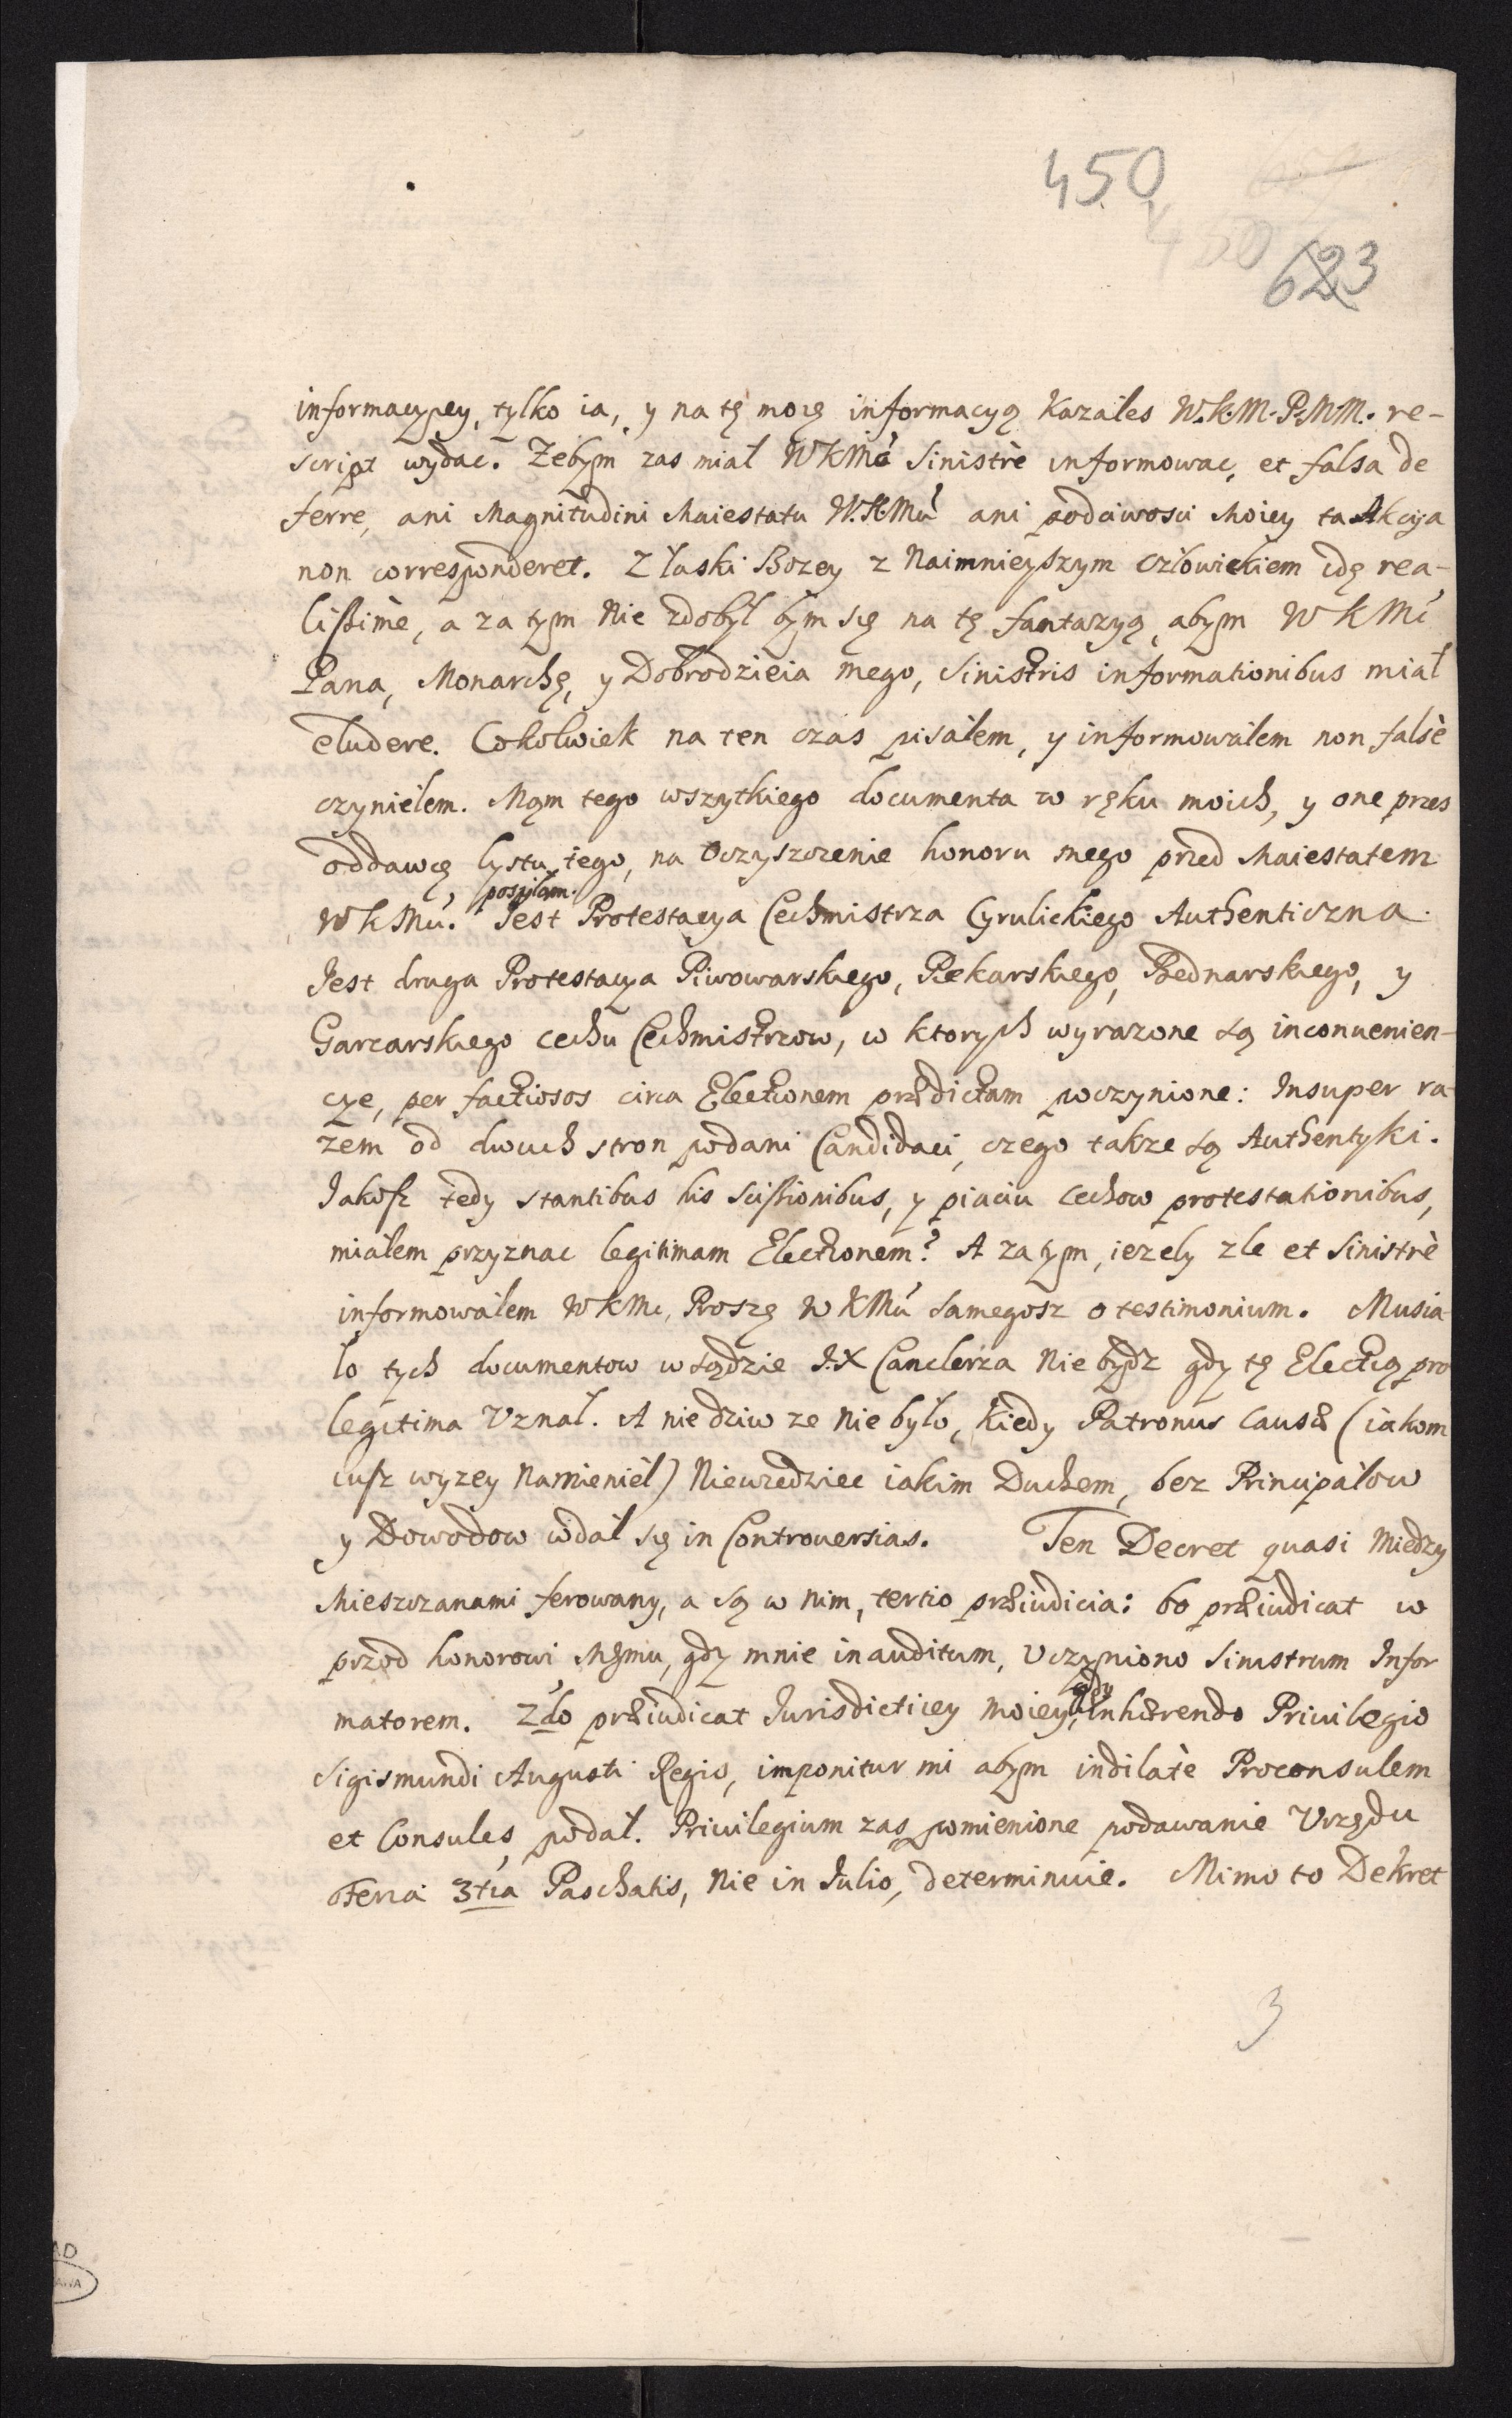 450
450
623
informacyey, tylko ia, y na tę moię informacyą Kazałes W.K.M. P.M.M. re-
script wydac. Zebym zas miał WKMć Sinistrè informowac, et falsa de
ferre, ani Magnitudini Maiestatu W.K.Mći ani podciwosci Moiey ta Akcya
non corresponderet. Z łaski Bozey z Naimnieyszym człowiekiem idę rea-
lissimè, a za tym Nie zdobył bym się na tę fantazyą, abym WKMć
Pana, Monarchę, y Dobrodzieia mego, Sinistris informationibus miał
eludere. Cokolwiek na ten czas pisałem, y informowałem non falsè
czyniełem. Mąm tego wszytkiego documenta w ręku moich, y one przes
oddawcę lystu tego, na Oczyszczenie honoru mego przed Maiestatem
posyłam.
WKMći. Jest Protestacya Cechmistrza Cyrulickiego Authenticzna.
Jest druga Protestacya Piwowarskiego, Piekarskiego, Bednarskiego, y
Garcarskiego cechu Cechmistrzow, w ktorych wyrazone są inconuenien-
cye, per factiosos circa Electionem prædictam poczynione: Insuper ra-
zem od dwuch stron podani Candidaci, czego takze są Authentyki.
Jakosz tedy stantibus his scissionibus, y piaciu cechow protestationibus,
miałem przyznac legitimam Electionem? A za tym, iezely zle et Sinistrè
informowałem WKMć, Proszę WKMći samegosz o testimonium. Musia
lo tych documentow w sądzie J.X Canclerza Nie bydz gdy tę Electią pro
legitima Vznał. A nie dziw ze Nie było, Kiedy Patronus Causæ (iakom
iusz wyzey Namienieł) Niewiedziec iakim Duchem, bez Principałow
y Dowodow wdał się in Controuersias. Ten Decret quasi Miedzy
Mieszczanami ferowany, a są w nim, tertio præiudicia: bo præiudicat w
przod honorowi Memu, gdy mnie inauditum, Vczyniono Sinistrum Infor
matorem. 2do præiudicat Jurisdicticey Moiey, gdy Inhærendo Priuilegio
Sigismundi Augusti Regis, imponitur mi abym indilatè Proconsulem
et Consules podał. Priuilegium zas pomienione podawanie Vrzędu
Feria 3tia Paschatis, Nie in Julio, determinuie. Mimo to Dekret
3